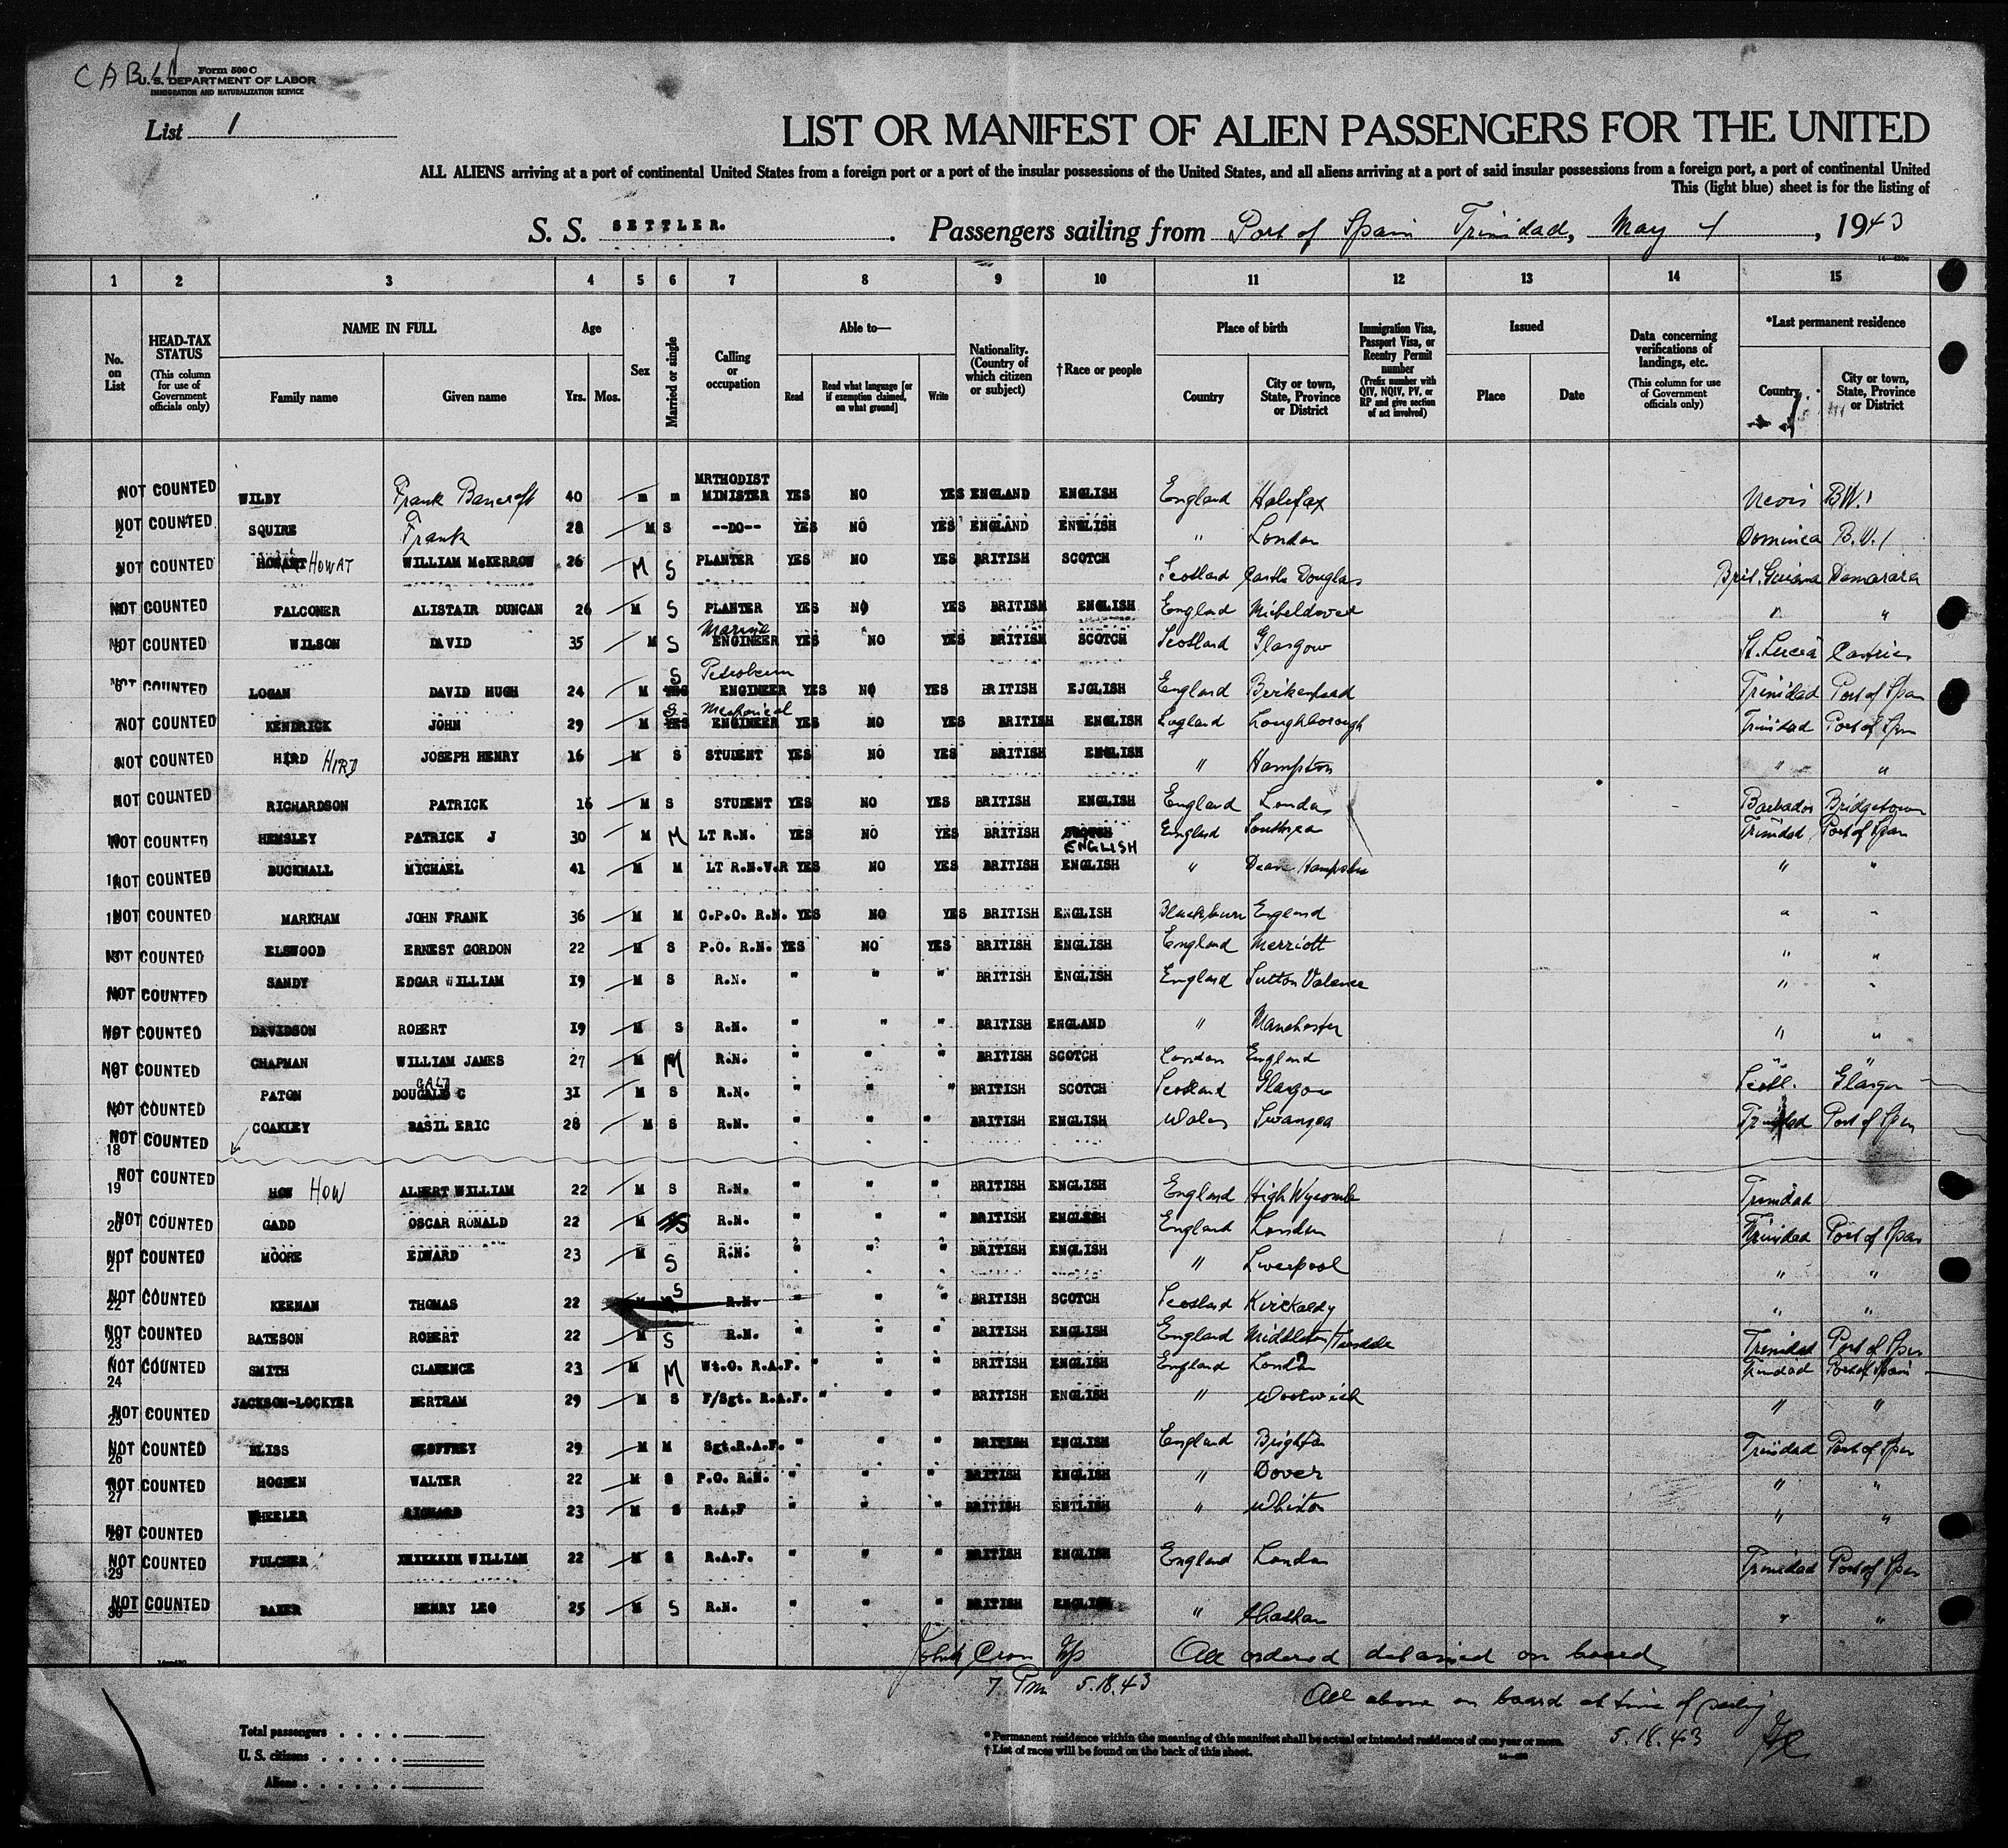 CABLL
Form 500 C
U. S. DEPARTMENT OF LABOR
IMMIGRATION AND NATURALIZATION SERVICE
List 1
LIST OR MANIFEST OF ALIEN PASSENGERS FOR THE UNITED
ALL ALIENS arriving at a port of continental United States from a foreign port or a port of the insular possessions of the United States, and all aliens arriving at a port of said insular possessions from a foreign port, a port of continental United
This (light blue) sheet is for the listing of
S. S. SETTLER. Passengers sailing from Port of Spain Trinidad, May 1, 1943
1 2 3 4 5 6 7 8 9 10 11 12 13 14 15
No. on List
HEAD-TAX STATUS (This column for use of Government officials only)
NAME IN FULL Family name Given name
Age Yrs. Mos.
Sex
Married or single
Calling or occupation
Able to— Read Read what language [or if exemption claimed, on what ground] Write
Nationality. (Country of which citizen or subject)
†Race or people
Place of birth Country City or town, State, Province or District
Immigration Visa, Passport Visa, or Reentry Permit number (Prefix number with QIV, NQIV, PV, or RP and give section of act involved)
Issued Place Date
Data concerning verifications of landings, etc. (This column for use of Government officials only)
*Last permanent residence Country City or town, State, Province or District
1 NOT COUNTED WILBY Frank Bancroft 40 m m MRTHODIST MINISTER YES NO YES ENGLAND ENGLISH England Halifax Nevis B.W.I
2 NOT COUNTED SQUIRE Frank 28 M S --DO-- YES NO YES ENGLAND ENGLISH " London Dominica B.W.I
3 NOT COUNTED HOWAT WILLIAM McKERROW 26 M S PLANTER YES NO YES BRITISH SCOTCH Scotland Castle Douglas Brit. Guiana Demarara
NOT COUNTED FALCONER ALISTAIR DUNCAN 26 M S PLANTER YES NO YES BRITISH ENGLISH England " "
5 NOT COUNTED WILSON DAVID 35 M S Marine ENGINEER YES NO YES BRITISH SCOTCH Scotland Glasgow St. Lucia Castries
6 NOT COUNTED LOGAN DAVID HUGH 24 M S Petroleum ENGINEER YES NO YES BRITISH EJGLISH England Birkenhead Trinidad Port of Span
7 NOT COUNTED KENDRICK JOHN 29 M S Mechanical ENGINEER YES NO YES BRITISH ENGLISH England Loughborough Trinidad Port of Spn
8 NOT COUNTED HIRD HIRD JOSEPH HENRY 16 M S STUDENT YES NO YES BRITISH ENGLISH " Hampton " "
NOT COUNTED RICHARDSON PATRICK 16 M S STUDENT YES NO YES BRITISH ENGLISH England London Barbados Bridgetown
10 NOT COUNTED HEMSLEY PATRICK J 30 M M LT R.N. YES NO YES BRITISH SCOTCH ENGLISH England Southsea Trinidad Port of Span
11 NOT COUNTED BUCKNALL MICHAEL 41 M M LT R.N.V.R YES NO YES BRITISH ENGLISH " Dean Hampshire " "
12 NOT COUNTED MARKHAM JOHN FRANK 36 M M C.P.O. R.N. YES NO YES BRITISH ENGLISH Blackburn England " "
13 NOT COUNTED ELSWOOD ERNEST GORDON 22 M S P.O. R.N. YES NO YES BRITISH ENGLISH England Merriott " "
NOT COUNTED SANDY EDGAR WILLIAM 19 M S R.N. " " " BRITISH ENGLISH England Sutton Valence " "
NOT COUNTED DAVIDSON ROBERT 19 M S R.N. " " " BRITISH ENGLAND " Manchester " "
16 NOT COUNTED CHAPMAN WILLIAM JAMES 27 M M R.N. " " " BRITISH SCOTCH London England " "
NOT COUNTED PATON DOUGALD C GALT 31 M S R.N. " " " BRITISH SCOTCH Scotland Glasgow Scotl. Glasgow
18 NOT COUNTED COAKLEY BASIL ERIC 28 M S R.N. " " " BRITISH ENGLISH Wales Swansea Trinidad Port of Span
19 NOT COUNTED HOW HOW ALBERT WILLIAM 22 M S R.N. " " " BRITISH ENGLISH England High Wycombe Trinidad
20 NOT COUNTED GADD OSCAR RONALD 22 M S R.N. " " " BRITISH ENGLISH England London Trinidad Port of Span
21 NOT COUNTED MOORE EDWARD 23 M S R.N. " " " BRITISH ENGLISH " Liverpool " "
22 NOT COUNTED KEENAN THOMAS 22 M S R.N. " " " BRITISH SCOTCH Scotland Kirckaldy " "
23 NOT COUNTED BATESON ROBERT 22 M S R.N. " " " BRITISH ENGLISH England Middleton/Teesdale Trinidad Port of Span
24 NOT COUNTED SMITH CLARENCE 23 M M Wt.O. R.A.F. " " " BRITISH ENGLISH England London Trinidad Port of Spain
25 NOT COUNTED JACKSON-LOCKYER BERTRAM 29 M S F/Sgt. R.A.F. " " " BRITISH ENGLISH " Woolwich " "
26 NOT COUNTED BLISS GEOFFREY 29 M M Sgt.R.A.F. " " " BRITISH ENGLISH England Brighton Trinidad Port of Span
27 NOT COUNTED HOGBEN WALTER 22 M S P.O. R.N. " " " BRITISH ENGLISH " Dover " "
28 NOT COUNTED WHEELER RICHARD 23 M S R.A.F " " " BRITISH ENTLISH " Whiston " "
29 NOT COUNTED FULCHER WILLIAM 22 M S R.A.F. " " " BRITISH ENGLISH England London Trinidad Port of Span
30 NOT COUNTED BAKER HENRY LEO 25 M S R.N. " " " BRITISH ENGLISH " " "
Cron All ordered detained on board
7 Pm 5.18.43
All above on board at time of sailing
5.18.43
Total passengers
U. S. citizens
Aliens
* Permanent residence within the meaning of this manifest shall be actual or intended residence of one year or more.
† List of races will be found on the back of this sheet.